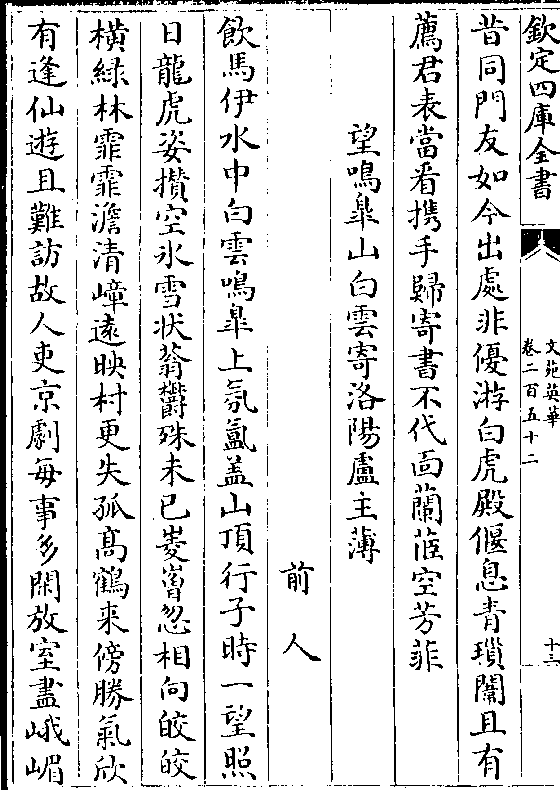 欽定四庫全書
文苑英華
卷二百五十二
十三
昔同門友如今出處非優游白虎殿偃息青瑣闈且有
薦君表當看攜手歸寄書不代面蘭茝空芳菲
望鳴臯山白雲寄洛陽盧主薄
前人
飲馬伊水中白雲鳴臯上氛氳盖山頂行子時一望照
日龍虎姿攅空氷雪状蓊欝殊未已崚嶒忽相向皎皎
横綠林霏霏澹清嶂遠映村更失孤髙鶴来傍勝氣欣
有逢仙遊且難訪故人吏京劇每事多閑放室畫峨嵋